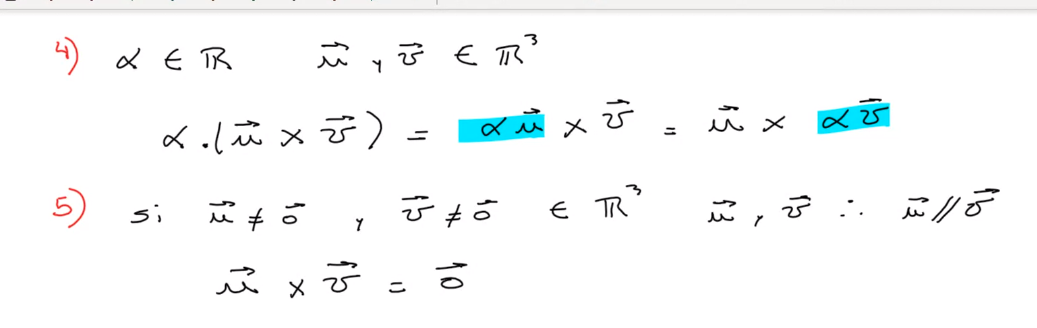 4) α ∈ ℝ   u⃗ , v⃗ ∈ ℝ³
α . (u⃗ × v⃗) = α u⃗ × v⃗ = u⃗ × α v⃗
5) si u⃗ ≠ 0⃗ , v⃗ ≠ 0⃗ ∈ ℝ³   u⃗ , v⃗ ∴ u⃗ // v⃗
u⃗ × v⃗ = 0⃗